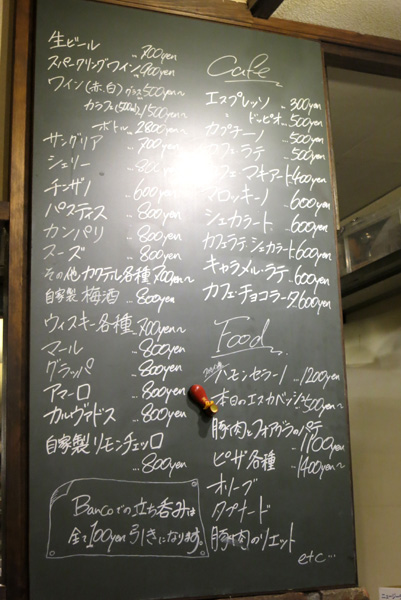 生ビール ‥700yen
スパークリングワイン‥900yen
ワイン(赤、白)グラス500yen〜
カラフェ(500ml)1,500yen
ボトル‥2800yen〜
サングリア ‥700yen
シェリー ‥800yen
チンザノ ‥600yen
パスティス ‥800yen
カンパリ ‥800yen
スーズ ‥800yen
その他カクテル各種 700yen〜
自家製 梅酒 ‥800yen
ウィスキー各種‥700yen〜
マール ‥800yen
グラッパ ‥800yen
アマーロ ‥800yen
カルヴァドス ‥800yen
自家製 リモンチェッロ
‥800yen
Bancoでの立ち呑みは
全て100yen引きになります。
Cafe
エスプレッソ ‥300yen
〃 ドッピオ‥500yen
カプチーノ ‥500yen
カフェ・ラテ ‥500yen
カフェ・マキアート‥400yen
マロッキーノ ‥600yen
シェカラート ‥600yen
カフェラテ・シェカラート‥600yen
キャラメル・ラテ ‥600yen
カフェ・チョコラータ‥600yen
Food
ハモンセラーノ ‥1200yen
本日のエスカベッシュ‥500yen〜
豚肉とフォアグラの
1,100yen
ピザ各種 ‥1400yen〜
オリーブ
タプナード
豚肉のリエット
etc…